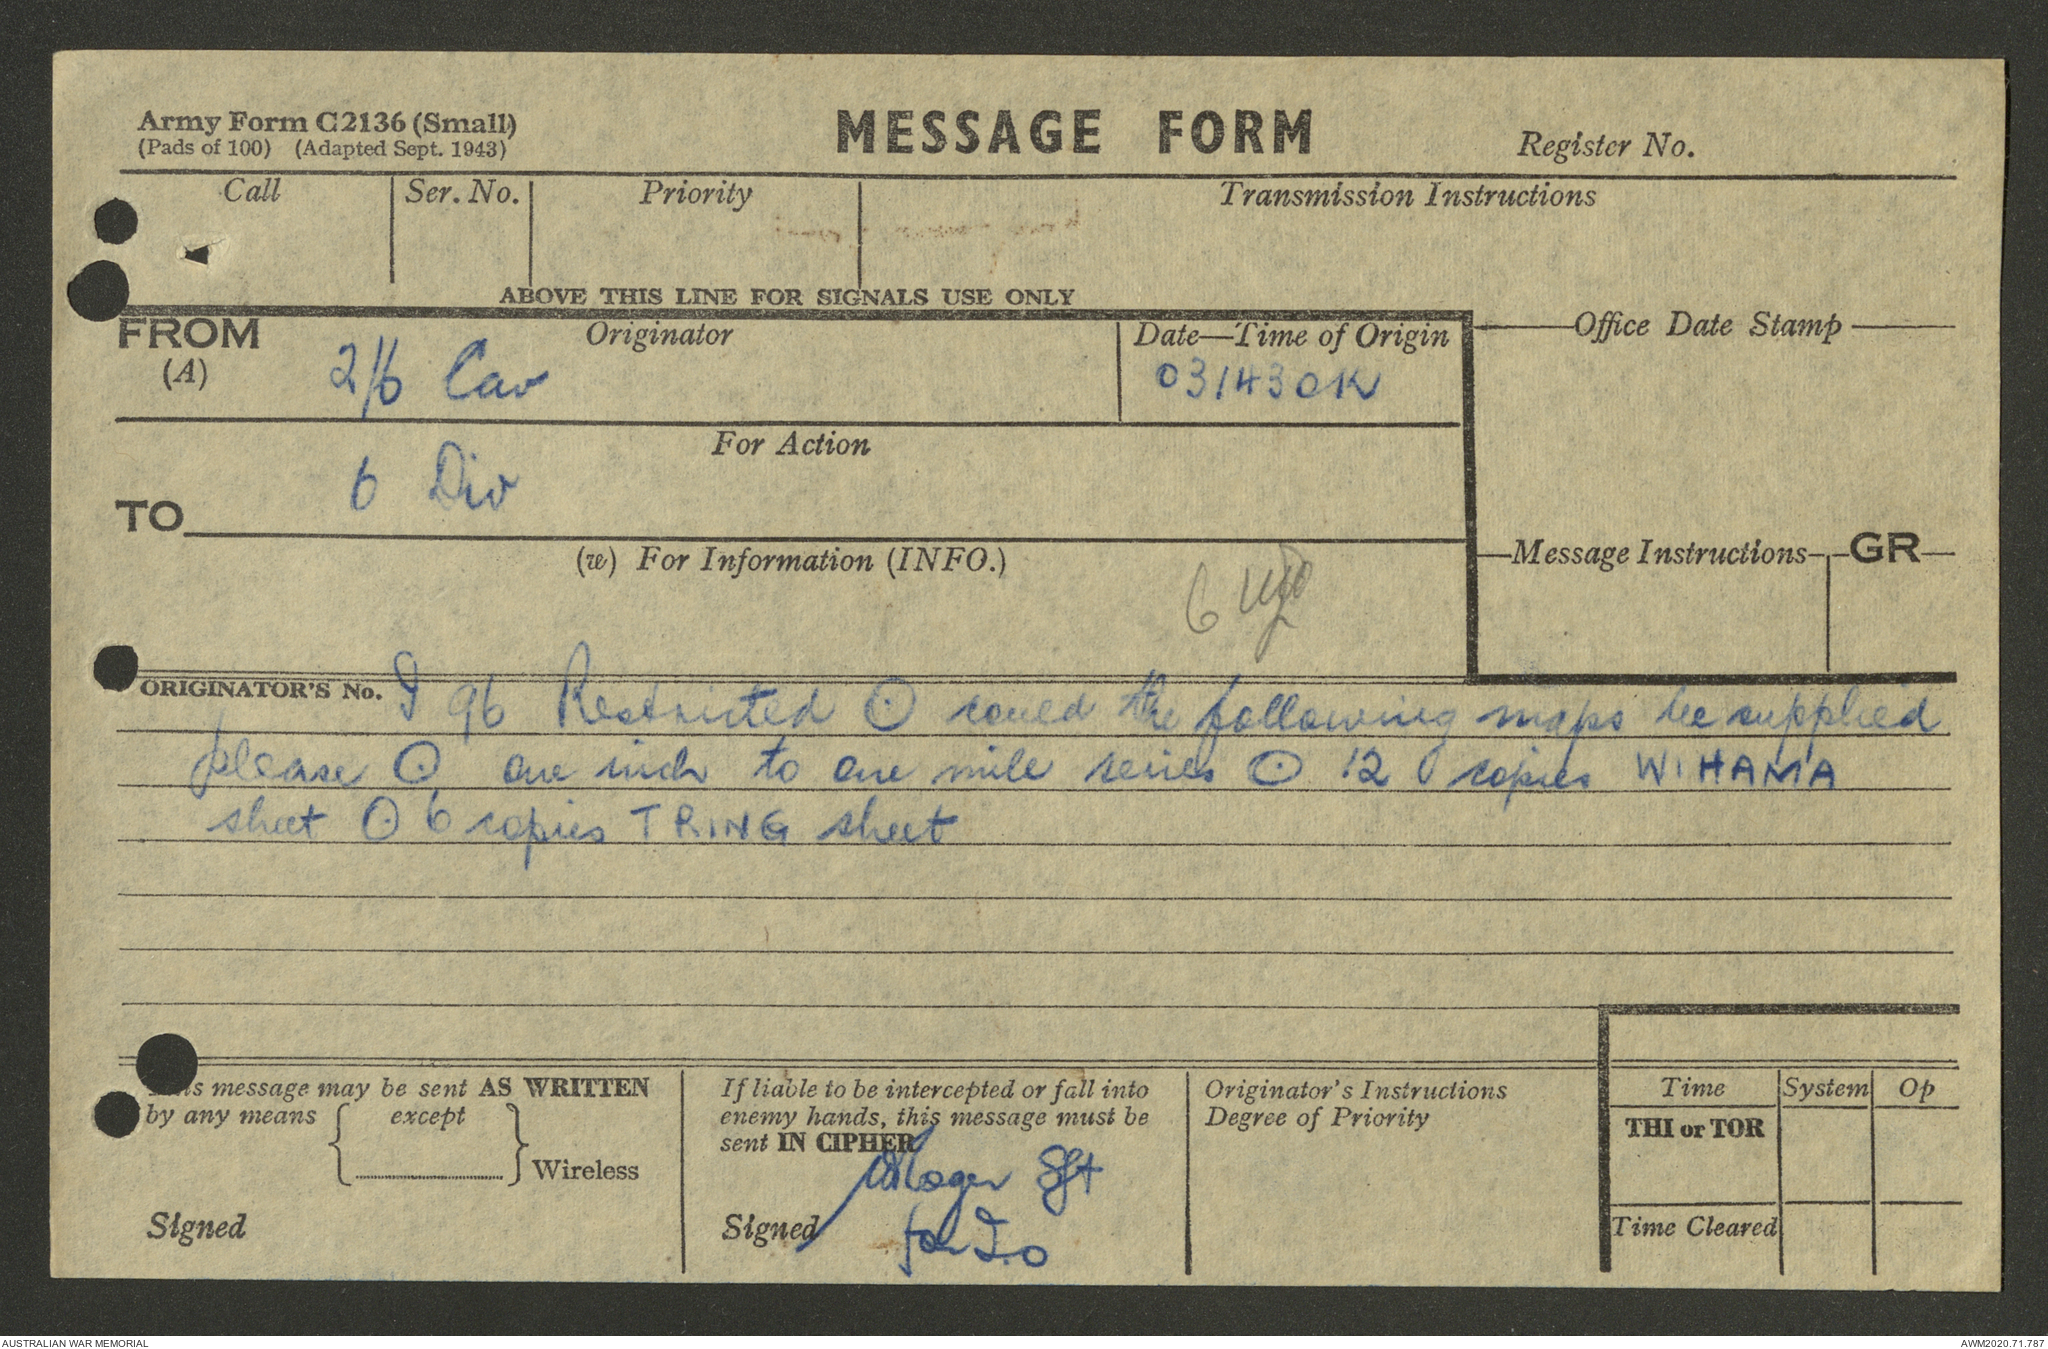 Army Form C2136 (Small)
(Pads of 100) (Adapted Sept. 1943)
MESSAGE FORM
Register No.
Call Ser. No. Priority Transmission Instructions
ABOVE THIS LINE FOR SIGNALS USE ONLY
FROM Originator Date—Time of Origin Office Date Stamp
(A) 2/6 Cav 031430K
For Action
6 Div
TO
(w) For Information (INFO.) Message Instructions GR
6
ORIGINATOR'S No. I 96 Restricted ⊙ could the following maps be supplied
please ⊙ one inch to one mile series ⊙ 12 copies WIHAMA
sheet ⊙ 6 copies TRING sheet
message may be sent AS WRITTEN
by any means except
Wireless
Signed
If liable to be intercepted or fall into
enemy hands, this message must be
sent IN CIPHER
Sgt
Signed for I.O
Originator's Instructions
Degree of Priority
Time System Op
THI or TOR
Time Cleared
AUSTRALIAN WAR MEMORIAL AWM2020.71.787